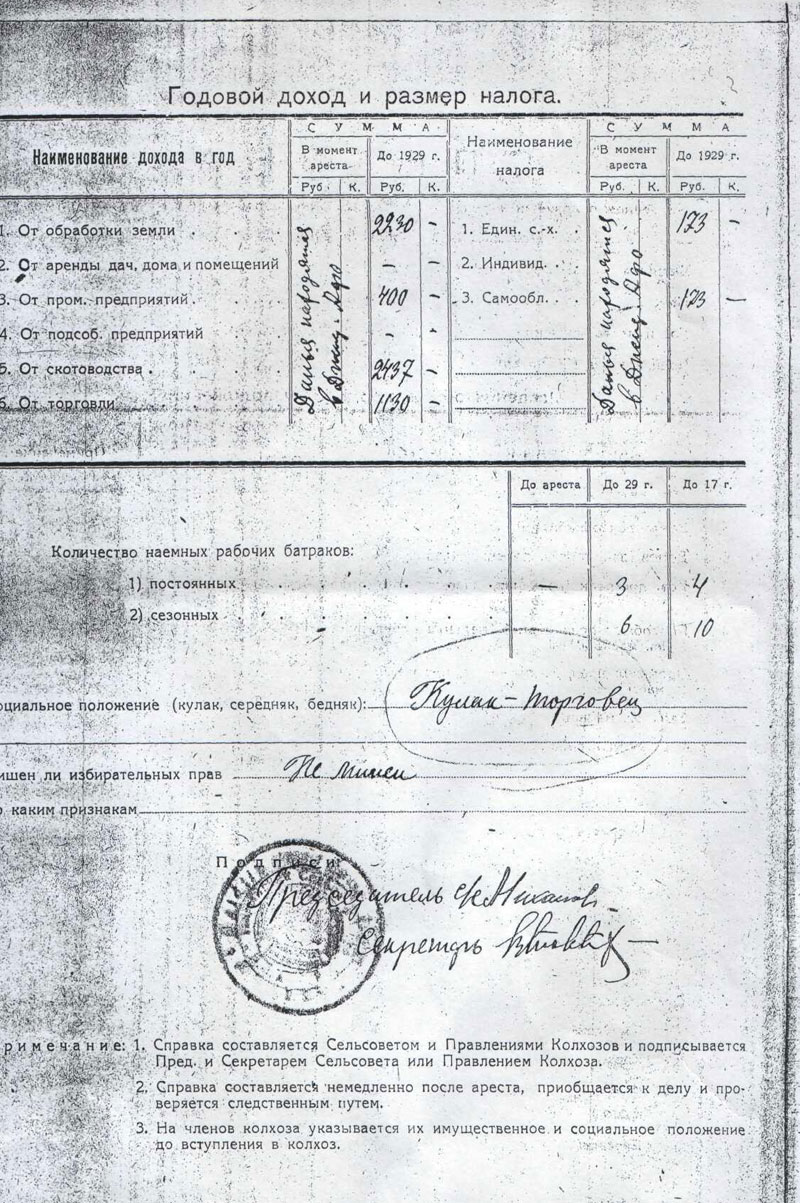 Годовой доход и размер налога.
Наименование дохода в год
СУММА
В момент ареста
До 1929 г.
Руб. К. Руб. К.
Наименование налога
СУММА
В момент ареста
До 1929 г.
Руб. К. Руб. К.
1. От обработки земли 2230 —
2. От аренды дач, дома и помещений —
3. От пром. предприятий 400 —
4. От подсоб. предприятий —
5. От скотоводства 2437 —
6. От торговли 1130 —
в
1. Един. с.-х. 173 —
2. Индивид.
3. Самообл. 173 —
в
До ареста До 29 г. До 17 г.
Количество наемных рабочих батраков:
1) постоянных — 3 4
2) сезонных 6 10
оциальное положение (кулак, середняк, бедняк): Кулак-торговец
ишен ли избирательных прав Не
о каким признакам
Подписи:
Председатель
Секретарь
римечание: 1. Справка составляется Сельсоветом и Правлениями Колхозов и подписывается
Пред. и Секретарем Сельсовета или Правлением Колхоза.
2. Справка составляется немедленно после ареста, приобщается к делу и про-
веряется следственным путем.
3. На членов колхоза указывается их имущественное и социальное положение
до вступления в колхоз.